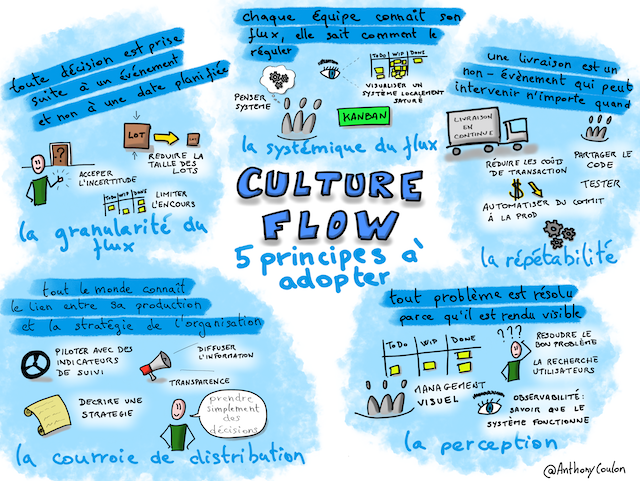 toute décision est prise
suite à un événement
et non à une date planifiée
LOT
RÉDUIRE LA
TAILLE DES
LOTS
?
ACCEPER
L'INCERTITUDE
ToDo WIP DONE
LIMITER
L'ENCOURS
la granularité du
flux
chaque équipe connaît son
flux, elle sait comment le
réguler
PENSER
SYSTÈME
ToDo WIP DONE
VISUALISER UN
SYSTÈME LOCALEMENT
SATURÉ
KANBAN
la systémique du flux
une livraison est un
non-évènement qui peut
intervenir n'importe quand
LIVRAISON
EN
CONTINUE
RÉDUIRE LES COÛTS
DE TRANSACTION
PARTAGER LE
CODE
TESTER
$
AUTOMATISER DU COMMIT
À LA PROD
la répétabilité
CULTURE
FLOW
5 principes à
adopter
tout le monde connaît
le lien entre sa production
et la stratégie de l'organisation
PILOTER AVEC DES
INDICATEURS
DE SUIVI
DIFFUSER
L'INFORMATION
TRANSPARENCE
DECRIRE UNE
STRATEGIE
prendre
simplement
des
décisions
la courroie de distribution
tout problème est résolu
parce qu'il est rendu visible
ToDo WIP DONE
???
RESOUDRE LE
BON PROBLÈME
LA RECHERCHE
UTILISATEURS
MANAGEMENT
VISUEL
OBSERVABILITÉ:
SAVOIR QUE LE
SYSTÈME FONCTIONNE
la perception
@AnthonyCoulon